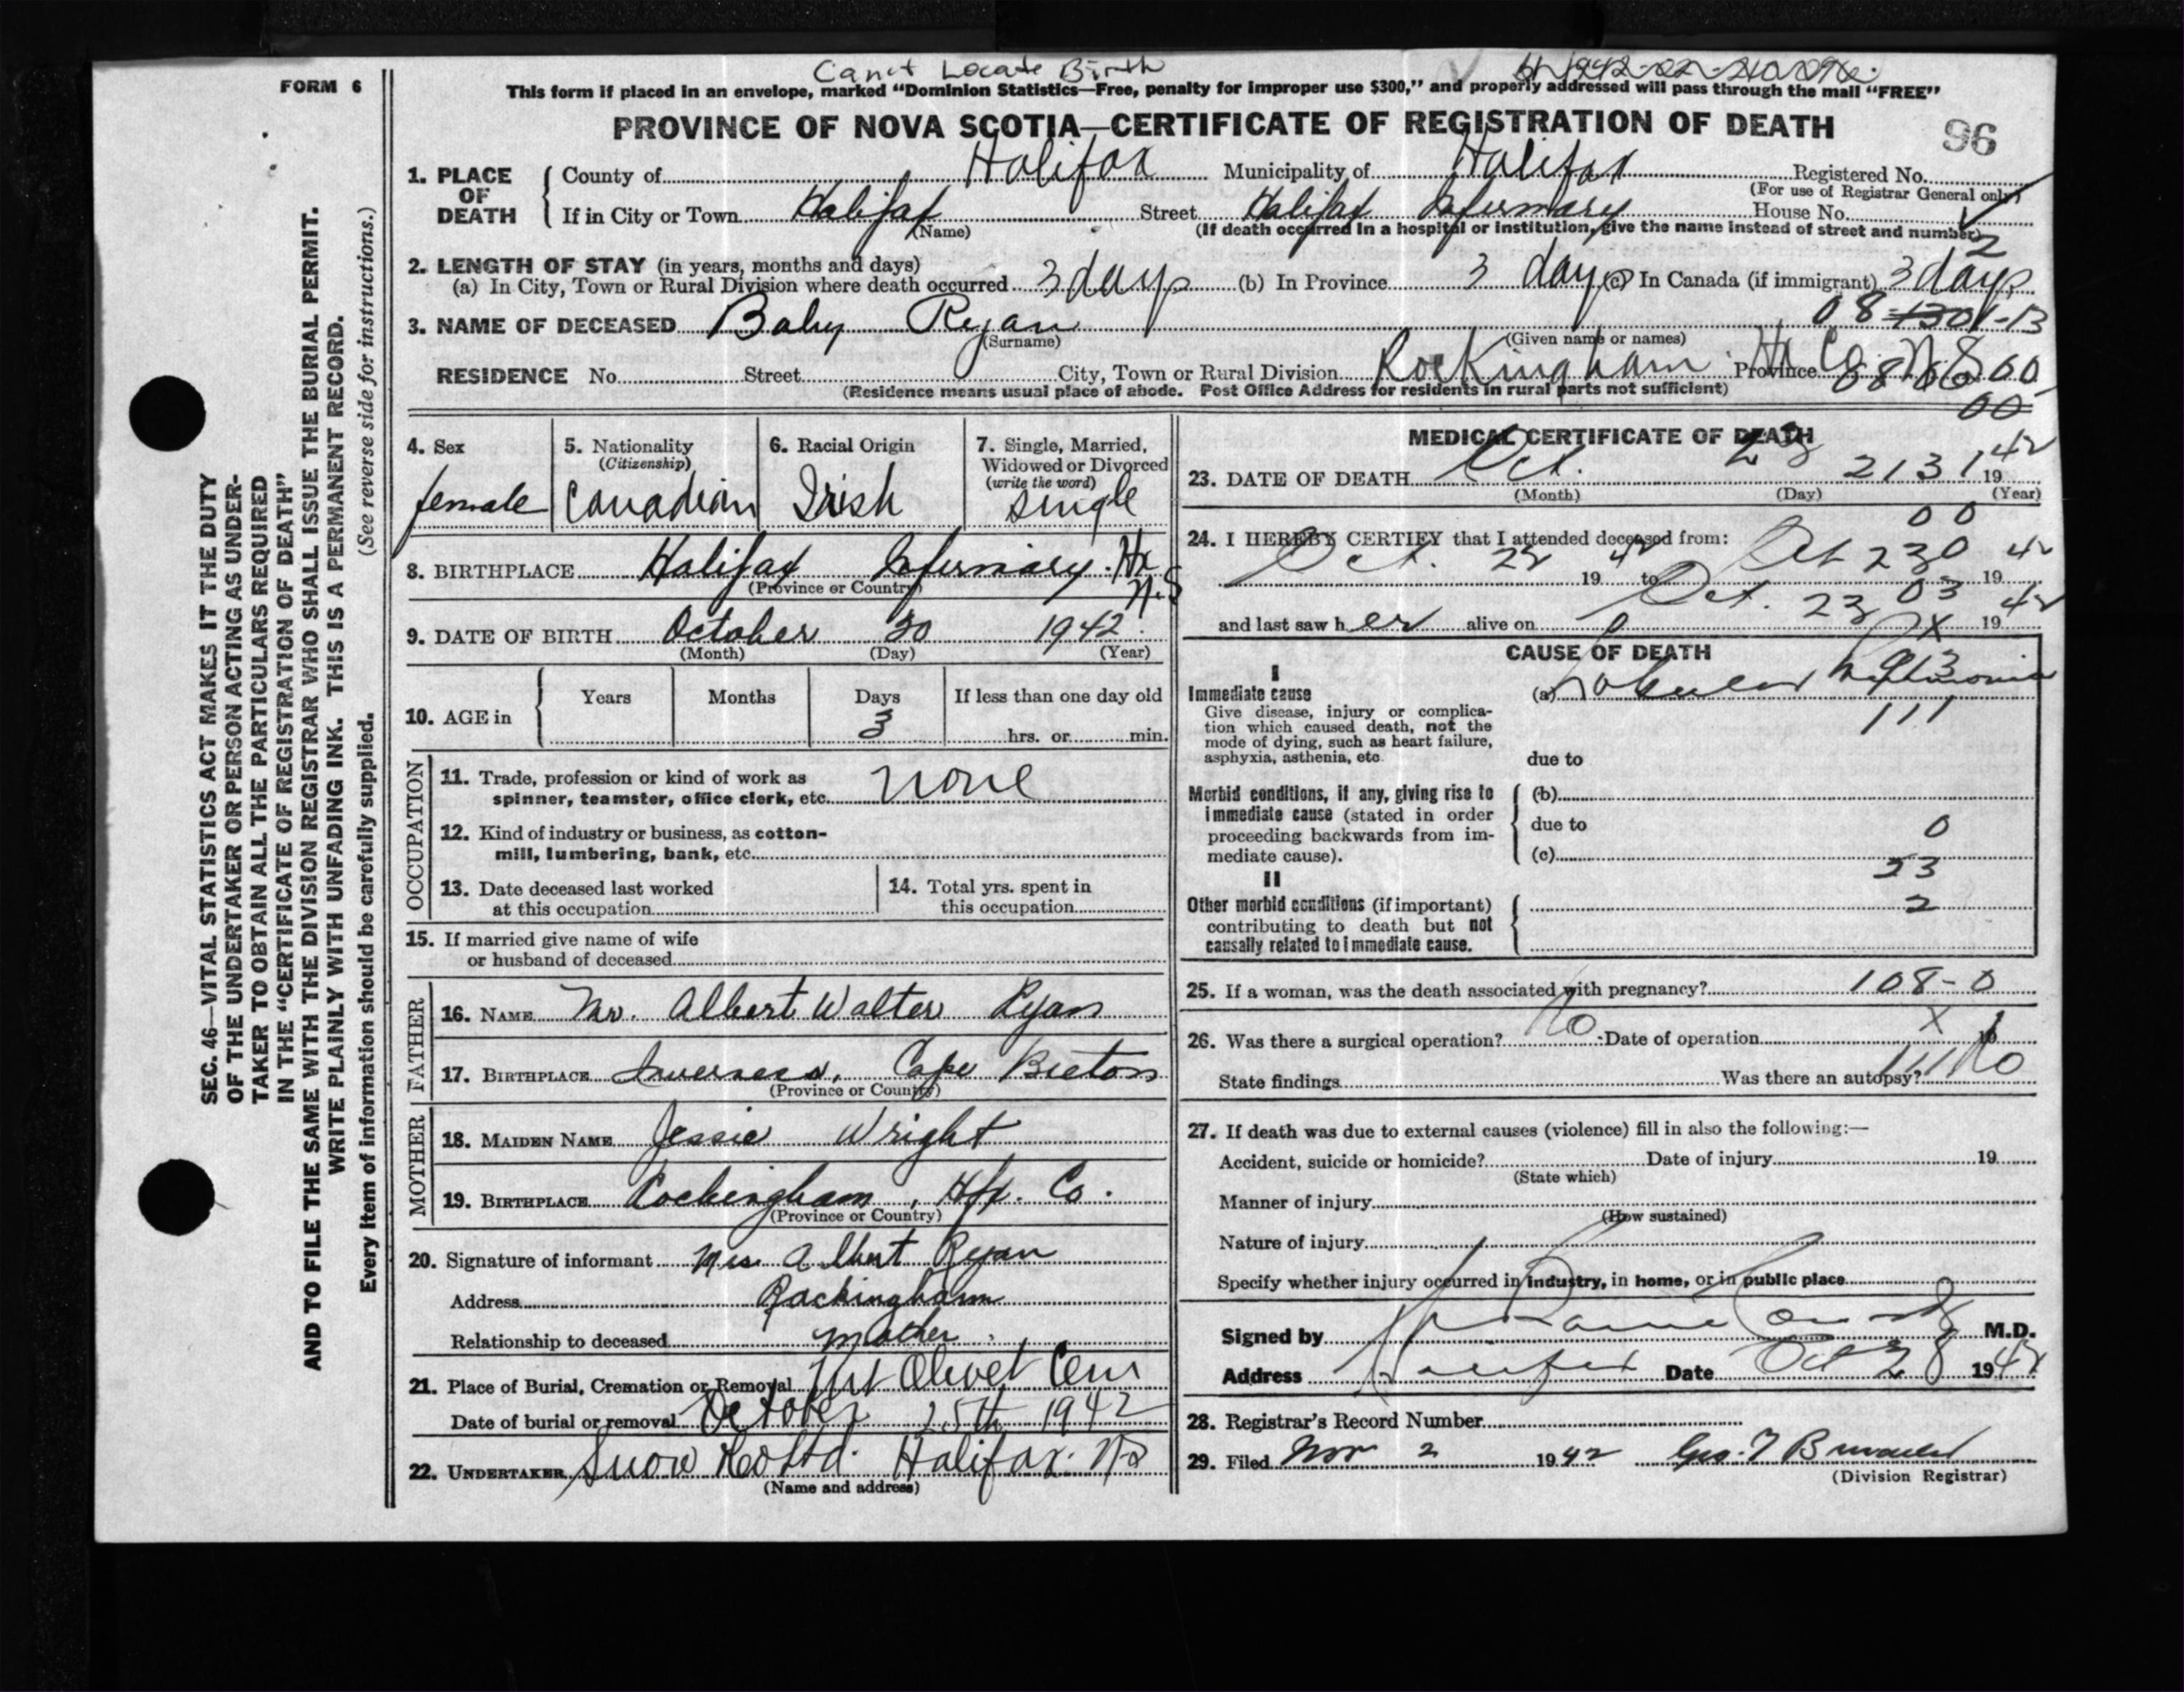 Can't Locate Birth
FORM 6
This form if placed in an envelope, marked “Dominion Statistics—Free, penalty for improper use $300,” and properly addressed will pass through the mail “FREE”
PROVINCE OF NOVA SCOTIA—CERTIFICATE OF REGISTRATION OF DEATH
96
1. PLACE OF DEATH
County of Halifax Municipality of Halifax Registered No.
(For use of Registrar General only)
If in City or Town Halifax Street Halifax Infirmary House No.
(Name) (If death occurred in a hospital or institution, give the name instead of street and number)
2
2. LENGTH OF STAY (in years, months and days)
(a) In City, Town or Rural Division where death occurred 3 days (b) In Province 3 days (c) In Canada (if immigrant) 3 days
3. NAME OF DECEASED Baby Ryan
(Surname) (Given name or names)
RESIDENCE No. Street City, Town or Rural Division Rockingham Province Hx Co. N.S.
(Residence means usual place of abode. Post Office Address for residents in rural parts not sufficient)
00
SEC. 46—VITAL STATISTICS ACT MAKES IT THE DUTY
OF THE UNDERTAKER OR PERSON ACTING AS UNDER-
TAKER TO OBTAIN ALL THE PARTICULARS REQUIRED
IN THE “CERTIFICATE OF REGISTRATION OF DEATH”
AND TO FILE THE SAME WITH THE DIVISION REGISTRAR WHO SHALL ISSUE THE BURIAL PERMIT.
WRITE PLAINLY WITH UNFADING INK. THIS IS A PERMANENT RECORD.
Every item of information should be carefully supplied. (See reverse side for instructions.)
4. Sex
female
5. Nationality
(Citizenship)
Canadian
6. Racial Origin
Irish
7. Single, Married,
Widowed or Divorced
(write the word)
single
8. BIRTHPLACE Halifax Infirmary. Hx
N.S
(Province or Country)
9. DATE OF BIRTH October 20 1942.
(Month) (Day) (Year)
10. AGE in
Years Months Days If less than one day old
3 hrs. or min.
OCCUPATION
11. Trade, profession or kind of work as
spinner, teamster, office clerk, etc. none
12. Kind of industry or business, as cotton-
mill, lumbering, bank, etc.
13. Date deceased last worked
at this occupation
14. Total yrs. spent in
this occupation
15. If married give name of wife
or husband of deceased
FATHER
16. NAME Mr. Albert Walter Ryan
17. BIRTHPLACE Inverness, Cape Breton
(Province or Country)
MOTHER
18. MAIDEN NAME Jessie Wright
19. BIRTHPLACE Rockingham, Hfx. Co.
(Province or Country)
20. Signature of informant Mrs Albert Ryan
Address Rockingham
Relationship to deceased Mother
21. Place of Burial, Cremation or Removal Mt Olivet Cem
Date of burial or removal October 25th 1942
22. UNDERTAKER Snow & Co Ltd. Halifax. NS
(Name and address)
MEDICAL CERTIFICATE OF DEATH
23. DATE OF DEATH Oct. 23 2131 1942
(Month) (Day) (Year)
00
24. I HEREBY CERTIFY that I attended deceased from:
Oct. 22 1942 to Oct 23 0 1942
03
and last saw her alive on Oct. 23 1942
X
CAUSE OF DEATH
I
Immediate cause
Give disease, injury or complica-
tion which caused death, not the
mode of dying, such as heart failure,
asphyxia, asthenia, etc.
(a) Lobular Pneumonia
111
due to
Morbid conditions, if any, giving rise to
immediate cause (stated in order
proceeding backwards from im-
mediate cause).
(b)
due to
0
(c)
53
II
Other morbid conditions (if important)
contributing to death but not
causally related to immediate cause.
2
25. If a woman, was the death associated with pregnancy? 108-0
X
26. Was there a surgical operation? No Date of operation 19
State findings Was there an autopsy? 111 No
27. If death was due to external causes (violence) fill in also the following:—
Accident, suicide or homicide? Date of injury 19
(State which)
Manner of injury
(How sustained)
Nature of injury
Specify whether injury occurred in industry, in home, or in public place
Signed by M.D.
Address Halifax Date Oct 28 1942
28. Registrar's Record Number
29. Filed Nov 2 1942 Geo. F
(Division Registrar)